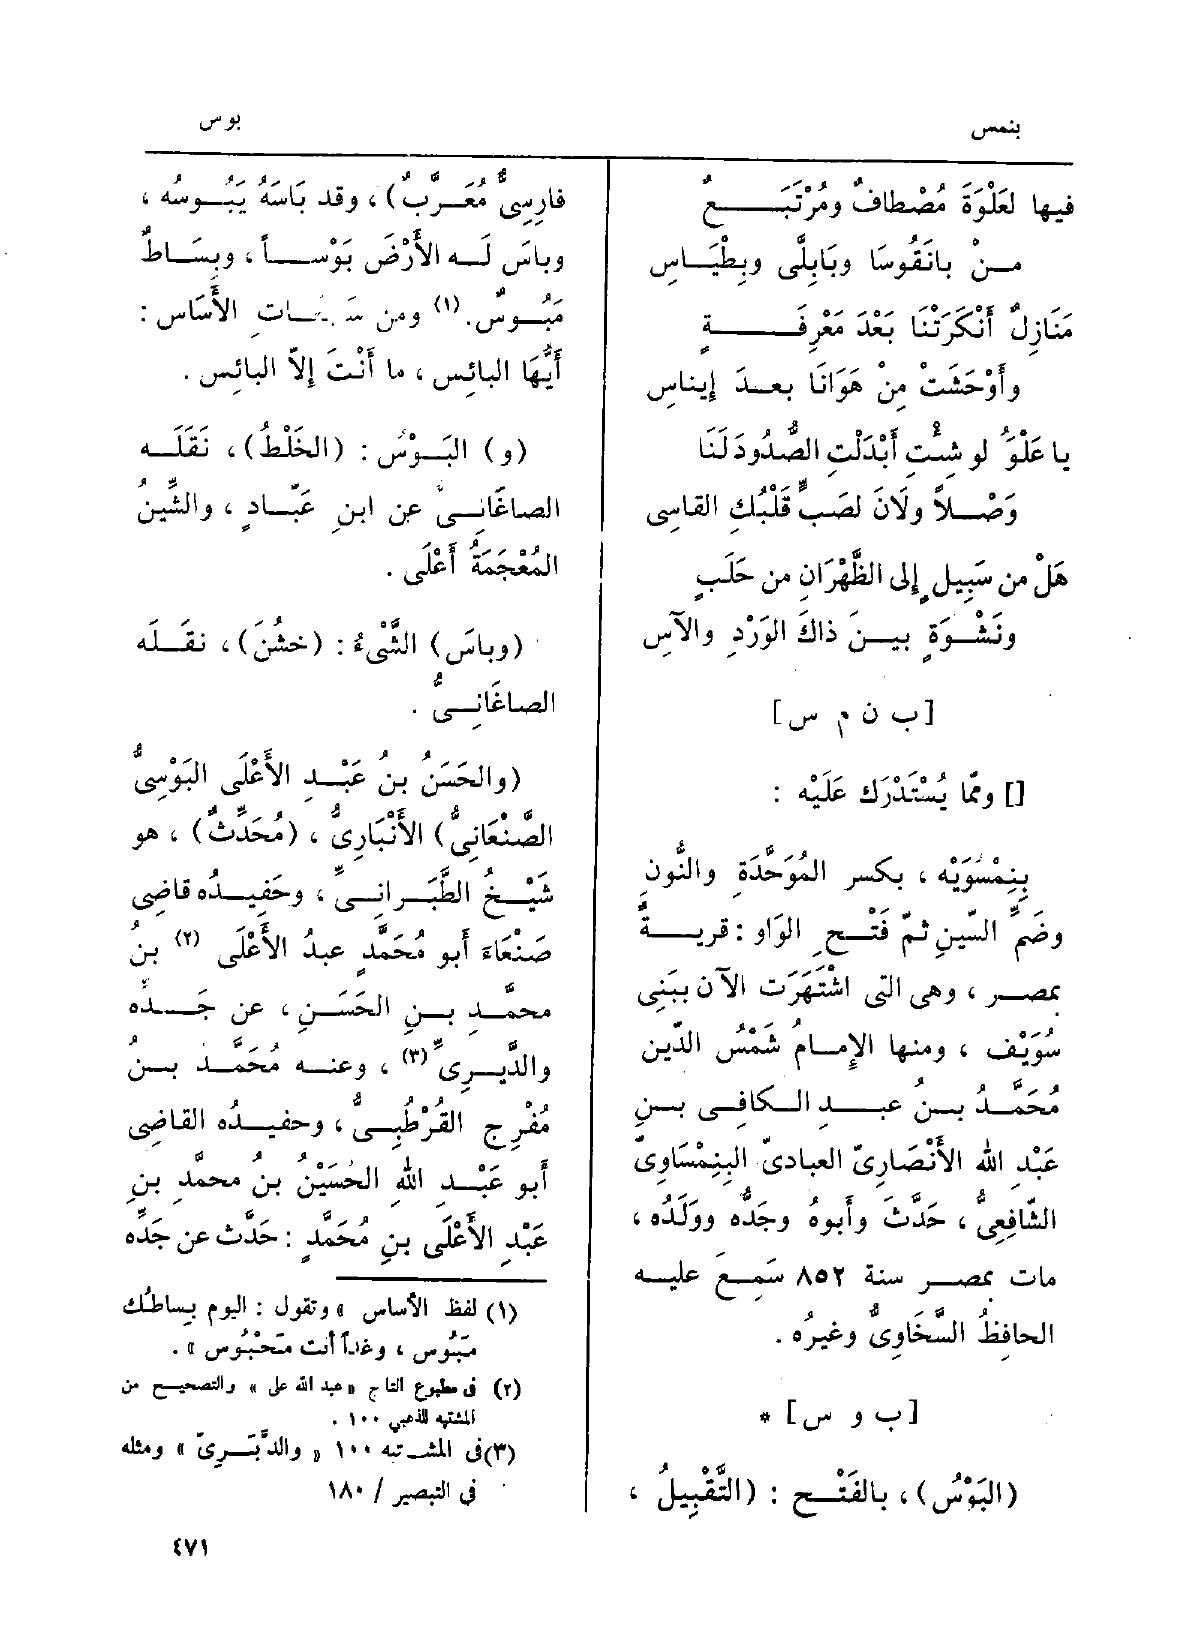 بنمس
بوس
فيها لعَلْوَةَ مُصْطافٌ ومُرْتَبَـــــعٌ
مـنْ بانَقُوسَا وبَابِلَّى وبِطْيَـاسِ
مَنَازِلٌ أَنْكَرَتْنَا بَعْدَ مَعْرِفَـــــةٍ
وأَوْحَشَتْ مِنْ هَوَانَا بعـدَ إِيناسِ
يا عَلْوُ لو شِئْتِ أَبْدَلْتِ الصُّدُودَ لَنَا
وَصْــلاً ولَانَ لصَبٍّ قَلْبُكِ القاسِى
هَلْ من سَبِيلٍ إِلى الظَّهْرَانِ من حَلَبٍ
ونَشْــوَةٍ بيــنَ ذاكَ الوَرْدِ والآسِ
[ب ن م س]
[] وممّا يُسْتَدْرَك عَلَيْه :
بِنِمْسُوَيْه ، بكسر المُوَحَّدَةِ والنُّونِ
وضَمِّ السِّينِ ثمّ فَتْــحِ الوَاو : قريــةٌ
بمصـر ، وهى التى اشْتَهَرَت الآن ببَنِى
سُوَيْف ، ومنها الإِمـامُ شَمْسُ الدِّين
مُحَمَّـدُ بــنُ عبــدِ الــكافِى بــنِ
عَبْدِ الله الأَنْصَارِىّ العبادىّ البِنِمْسَاوِىّ
الشَّافِعِىُّ ، حَدَّثَ وأَبوهُ وجَدُّه ووَلَدُه ،
مات بمصــر سنة ٨٥٢ سَمِـعَ عليــه
الحافِظُ السَّخَاوِىُّ وغيرُه .
[ب و س] *
(البَوْسُ) ، بالفَتْــح : (التَّقْبِيلُ ،
فارِسِىٌّ مُعَــرَّبٌ) ، وقد بَاسَهُ يَبُــوسُه ،
وباسَ لَــه الأَرْضَ بَوْســاً ، وبِسَـاطٌ
مَبُــوسٌ. (١) ومن الأَسَاس :
أَيُّهَا البائس ، ما أَنْتَ إِلاّ البائس .
(و) البَــوْسُ : (الخَلْطُ) ، نَقَلَــه
الصاغَانِــىُّ عن ابنِ عَبَّــادٍ ، والشِّينُ
المُعْجَمَةُ أَعْلَى .
(وباسَ) الشَّىْءُ : (خشُنَ) ، نقَــلَه
الصاغَانِــىُّ .
(والحَسَنُ بنُ عَبْــدِ الأَعْلَى البَوْسِىُّ
الصَّنْعَانِىُّ) الأَنْبَارِىُّ ، (مُحَدِّثٌ) ، هو
شَيْــخُ الطَّبَــرانِــىِّ ، وحَفِيــدُه قاضِى
صَنْعَاءَ أَبو مُحَمَّدٍ عبدُ الأَعْلَى (٢) بنُ
محمَّــدِ بــنِ الحَسَــنِ ، عن جَــدِّه
والدَّيــرِىِّ (٣) ، وعنــه مُحَمَّــد بــنُ
مُفْرِج القُرْطُبِــىُّ ، وحفيــدُه القاضِى
أَبو عَبْــدِ اللهِ الحُسَيْنُ بنُ محمَّدِ بنِ
عَبْدِ الأَعْلَى بنِ مُحَمَّدٍ : حَدَّث عن جَدِّه
(١) لفظ الأساس « وتقول : اليوم بِساطُك
مَبُوس ، وغداً أنت مَحْبُوس » .
(٢) فى مطبوع التاج « عبد الله على » والتصحيح من
المشتبه للذهبي ١٠٠ .
(٣) فى المشـتبه ١٠٠ « والدَّبَــرِىّ » ومثله
فى التبصير / ١٨٠
٤٧١